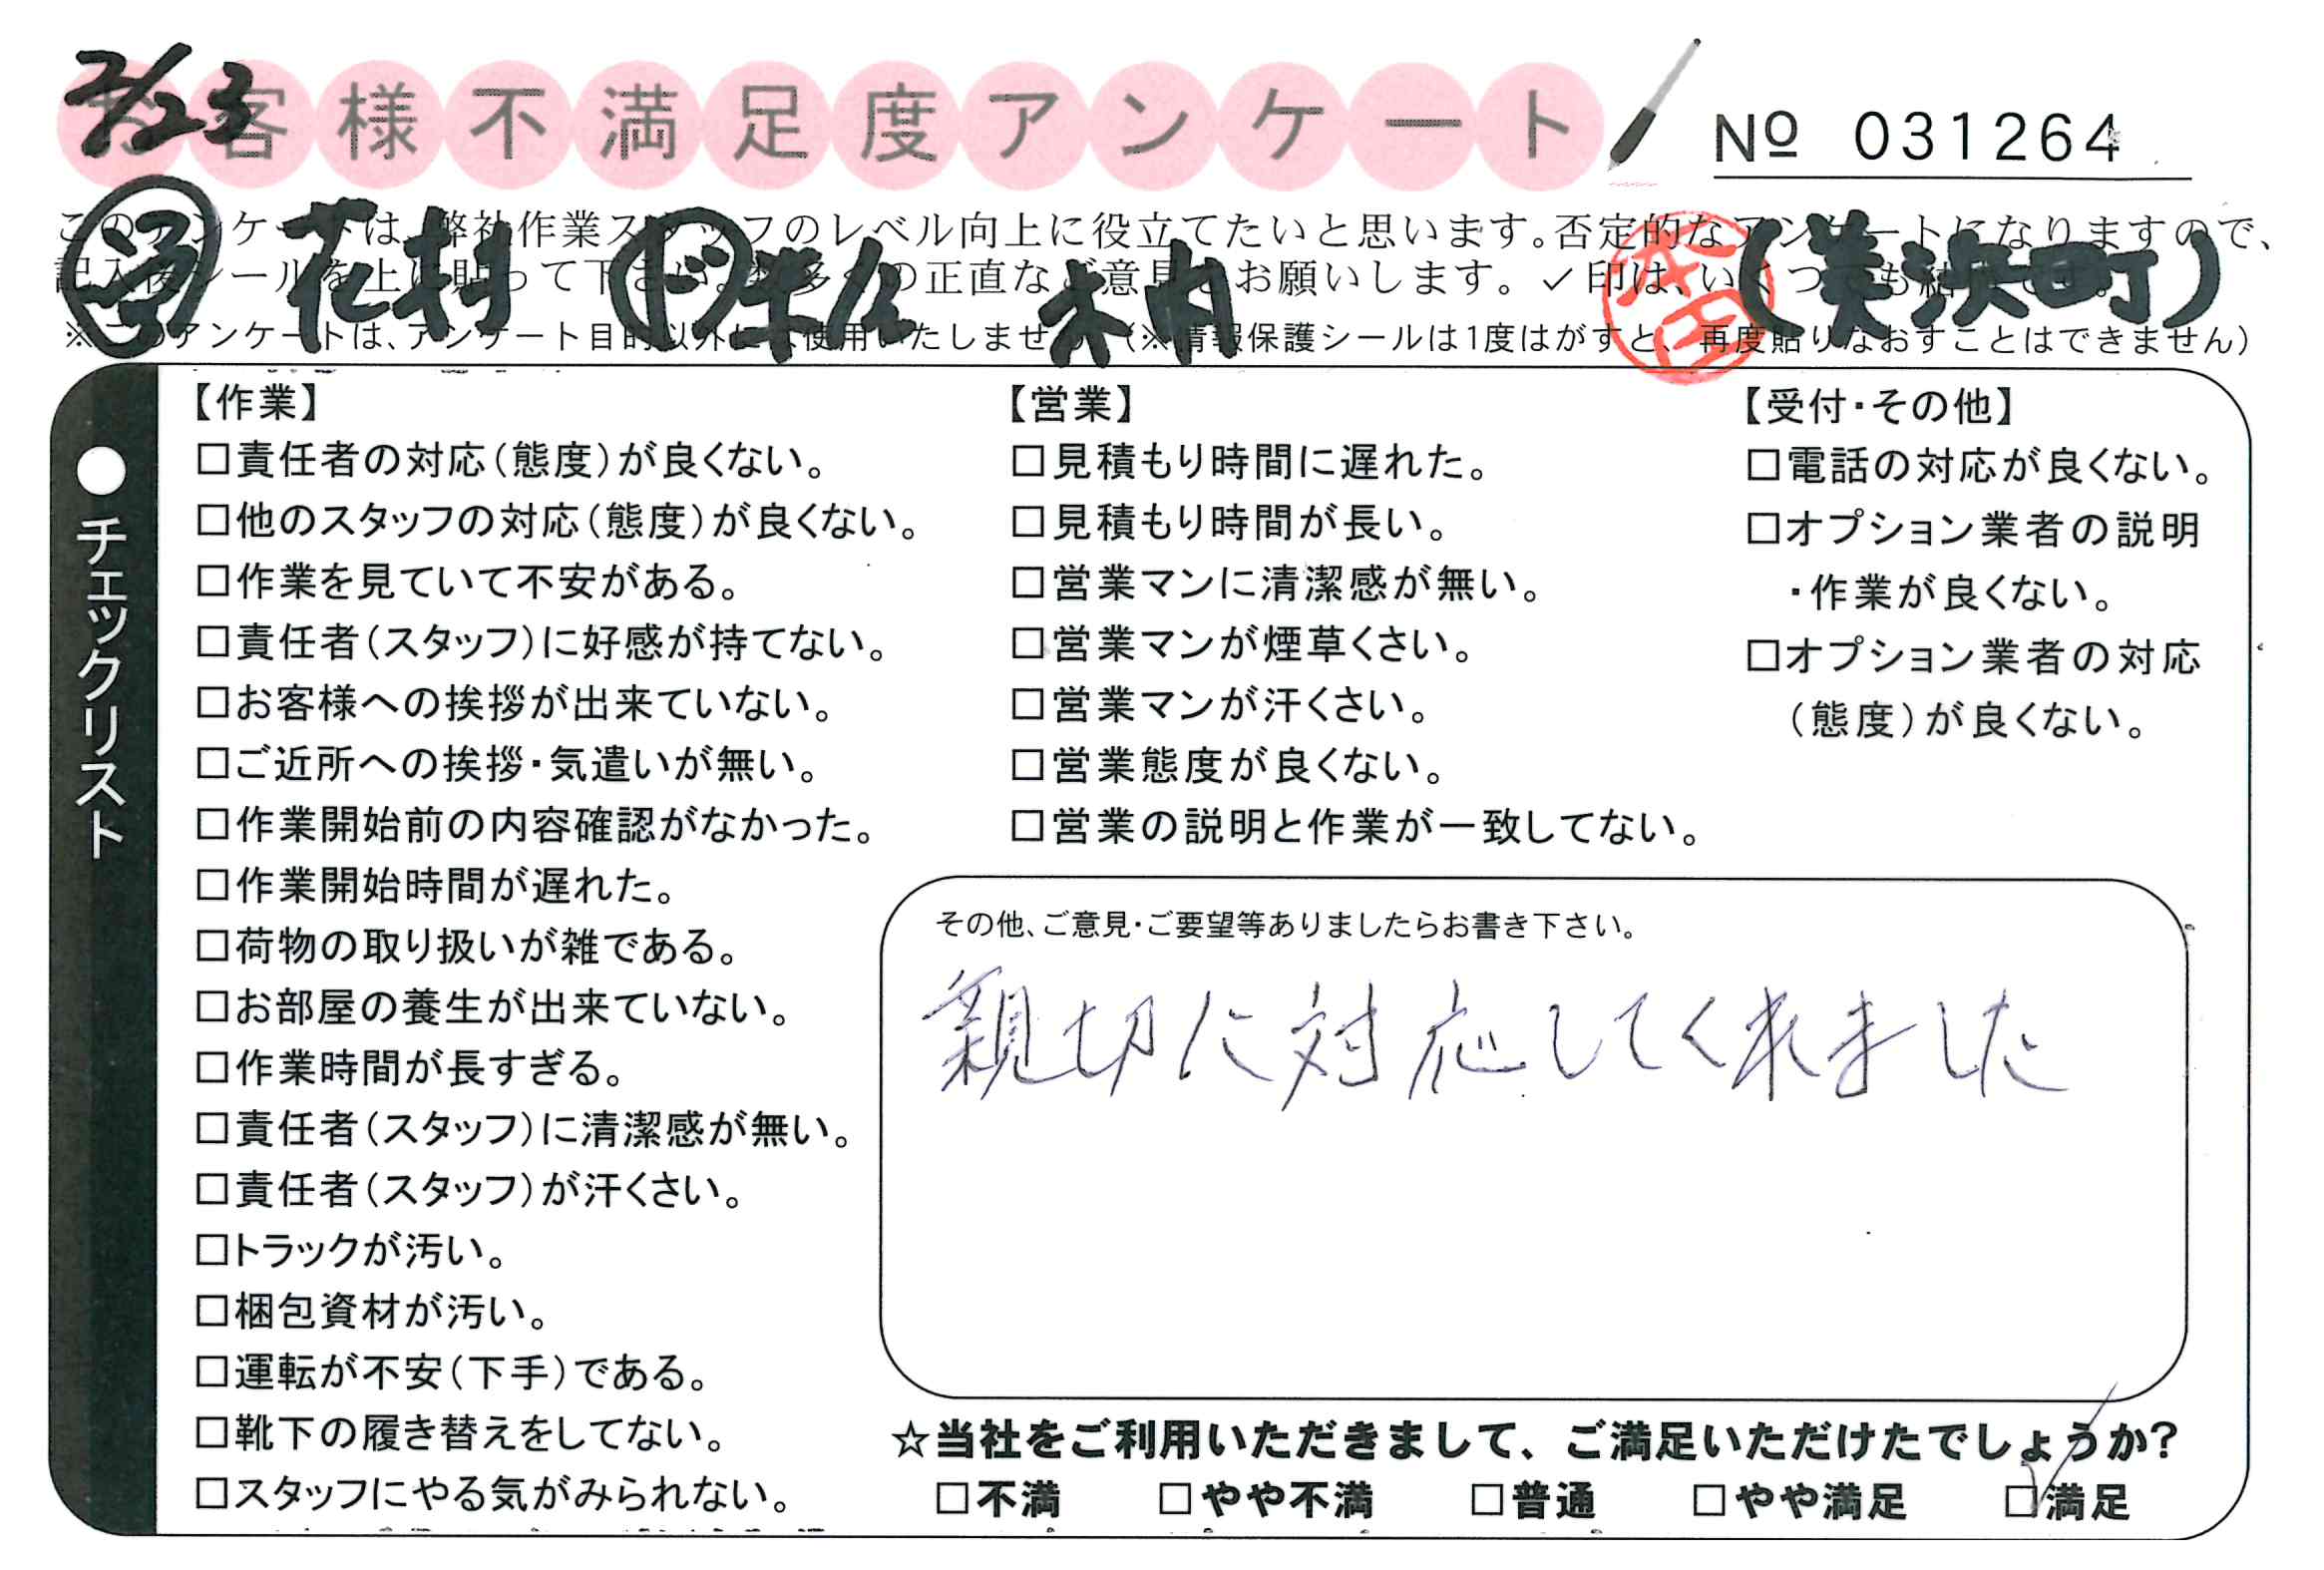 7/23
お客様不満足度アンケート
№ 031264
このアンケートは、弊社作業スタッフのレベル向上に役立てたいと思います。否定的なアンケートになりますので、
記入後シールを上に貼って下さい。数多くの正直なご意見をお願いします。✓印は、いくつでも結構です。
営 花村 ド 木内 本田 (美浜町)
※このアンケートは、アンケート目的以外には使用いたしません。(※情報保護シールは1度はがすと、再度貼りなおすことはできません)
●チェックリスト
【作業】
□責任者の対応(態度)が良くない。
□他のスタッフの対応(態度)が良くない。
□作業を見ていて不安がある。
□責任者(スタッフ)に好感が持てない。
□お客様への挨拶が出来ていない。
□ご近所への挨拶・気遣いが無い。
□作業開始前の内容確認がなかった。
□作業開始時間が遅れた。
□荷物の取り扱いが雑である。
□お部屋の養生が出来ていない。
□作業時間が長すぎる。
□責任者(スタッフ)に清潔感が無い。
□責任者(スタッフ)が汗くさい。
□トラックが汚い。
□梱包資材が汚い。
□運転が不安(下手)である。
□靴下の履き替えをしてない。
□スタッフにやる気がみられない。
【営業】
□見積もり時間に遅れた。
□見積もり時間が長い。
□営業マンに清潔感が無い。
□営業マンが煙草くさい。
□営業マンが汗くさい。
□営業態度が良くない。
□営業の説明と作業が一致してない。
【受付・その他】
□電話の対応が良くない。
□オプション業者の説明
・作業が良くない。
□オプション業者の対応
(態度)が良くない。
その他、ご意見・ご要望等ありましたらお書き下さい。
親切に対応してくれました
☆当社をご利用いただきまして、ご満足いただけたでしょうか?
□不満 □やや不満 □普通 □やや満足 ☑満足